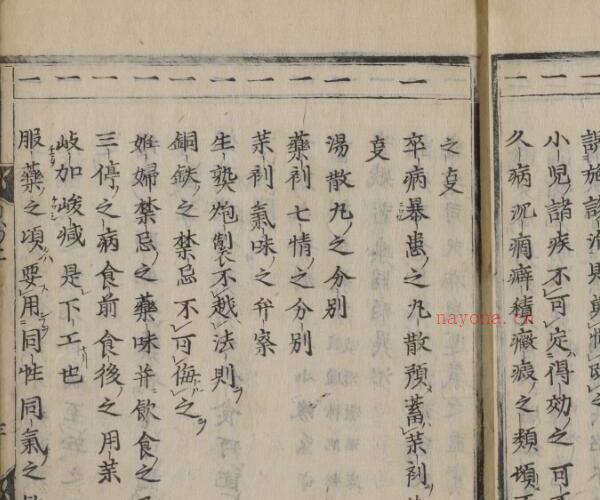 久病沉痼癖積癥瘕之類頃不
小兒諸疾不可定得効之可
之㕝
卒病暴患之丸散預蓄䒷剤
㕝
湯散丸之分別
藥剤七情之分別
䒷剤氣味之弁察
生熟炮製不越法則
銅鉄之禁忌不可侮之
姙婦禁忌之藥味并飲食之
三停之病食前食後之用䒷
岐加峻減是下工也
服藥之頃要用同性同氣之
nayona.cn